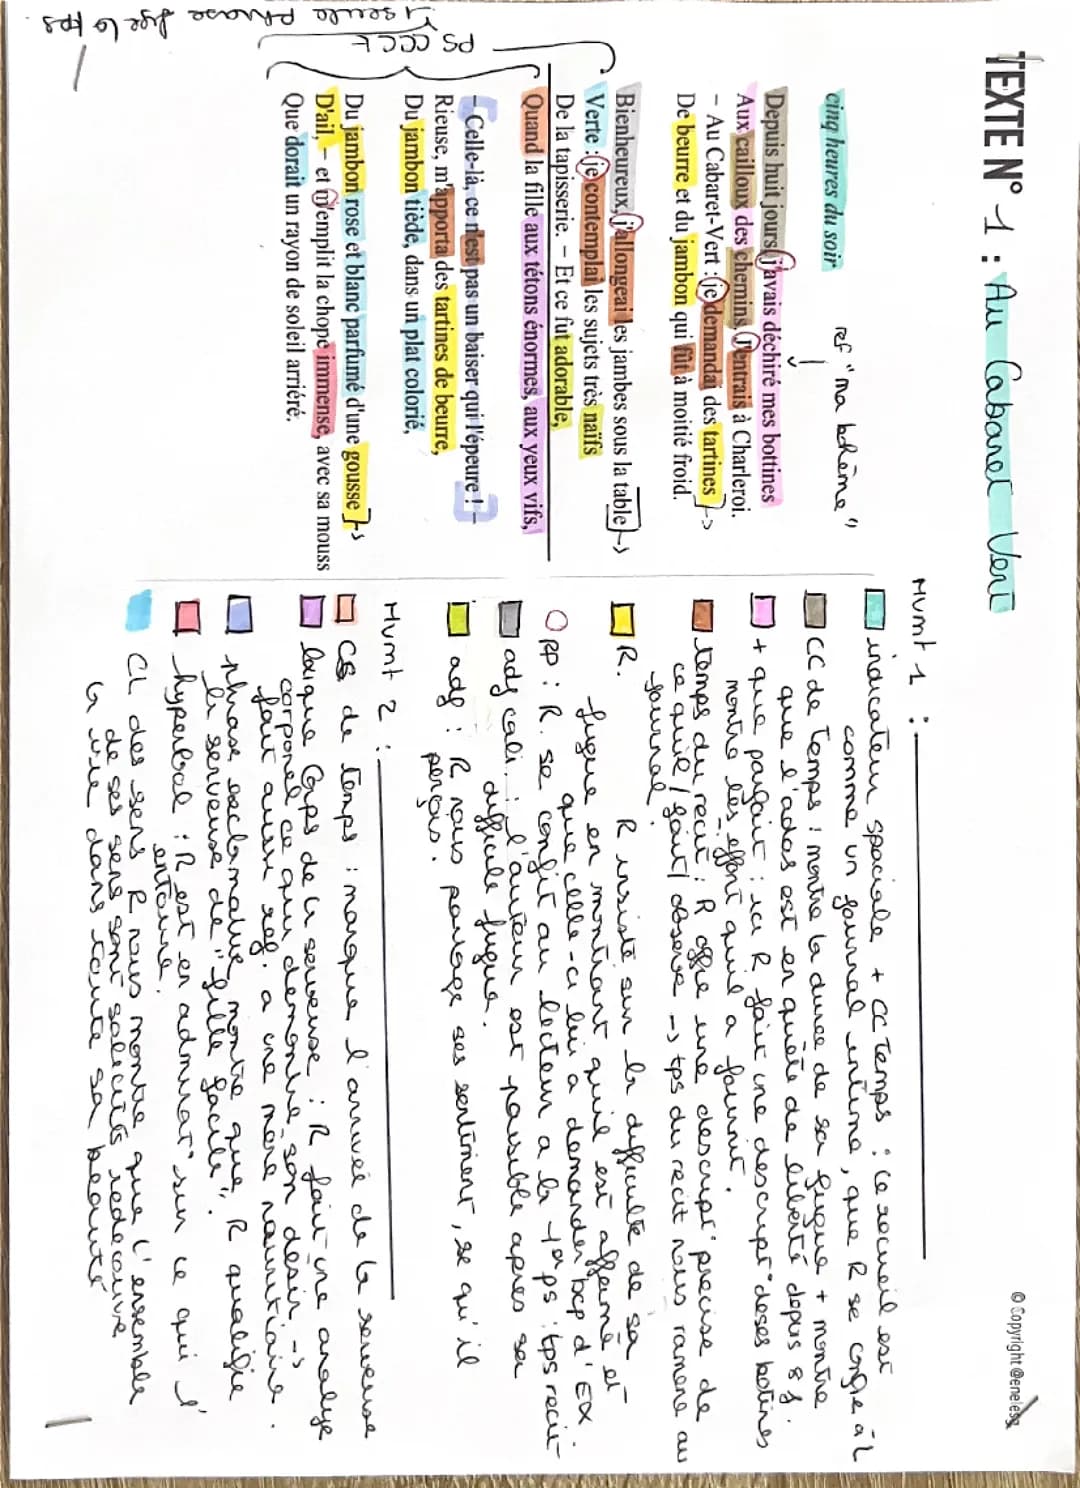 TEXTE N° 1 : Au Cabaret Vert
© Copyright @eneless
cinq heures du soir
ref "ma bohème"
Depuis huit jours, j'avais déchiré mes bottines
Aux cailloux des chemins. J'entrais à Charleroi.
– Au Cabaret-Vert : je demandai des tartines
De beurre et du jambon qui fût à moitié froid.
Bienheureux, j'allongeai les jambes sous la table
Verte : je contemplai les sujets très naïfs
De la tapisserie. – Et ce fut adorable,
Quand la fille aux tétons énormes, aux yeux vifs,
– Celle-là, ce n'est pas un baiser qui l'épeure ! –
Rieuse, m'apporta des tartines de beurre,
Du jambon tiède, dans un plat colorié,
Du jambon rose et blanc parfumé d'une gousse
D'ail, – et m'emplit la chope immense, avec sa mouss
Que dorait un rayon de soleil arriéré.
PS CCC T
1 seule phrase fige le tps
Mvmt 1 :
indicateur spaciale + CC temps : ce recueil est
comme un journal intime, que R se confie à l
CC de temps : montre la durée de sa fugue + montre
que l'ados est en quête de liberté depuis 8 j.
+ que parfait : ici R fait une descript° de ses botines
montre les effort qu'il a fournit.
temps du récit : R offre une descript° précise de
ce qu'il fait/observe → tps du recit nous ramène au
journal.
R. R insiste sur la difficulté de sa
fugue en montrant qu'il est affamé et
que celle-ci lui a demander bcp d'EX.
PP : R. se confit au lecteur a la 1ère ps : tps recit
adj cali. : l'auteur est paisible apres sa
difficile fugue.
adj : R nous partage ses sentiment, se qu'il
perçois.
Mvmt 2 :
CC de temps : marque l'arrivée de la serveuse
lexique Corps de la serveuse : R fait une analyse
corporel ce qui démontre son désir →
fait aussi ref. a une mère nourricière.
phrase exclamative, montre que R qualifie
la serveuse de "fille facile".
hyperbol : R est en admirat° sur ce qui l'
entoure.
CL des sens R nous montre que l'ensemble
de ses sens sont solicités, redecouvre
la vie dans toute sa beauté